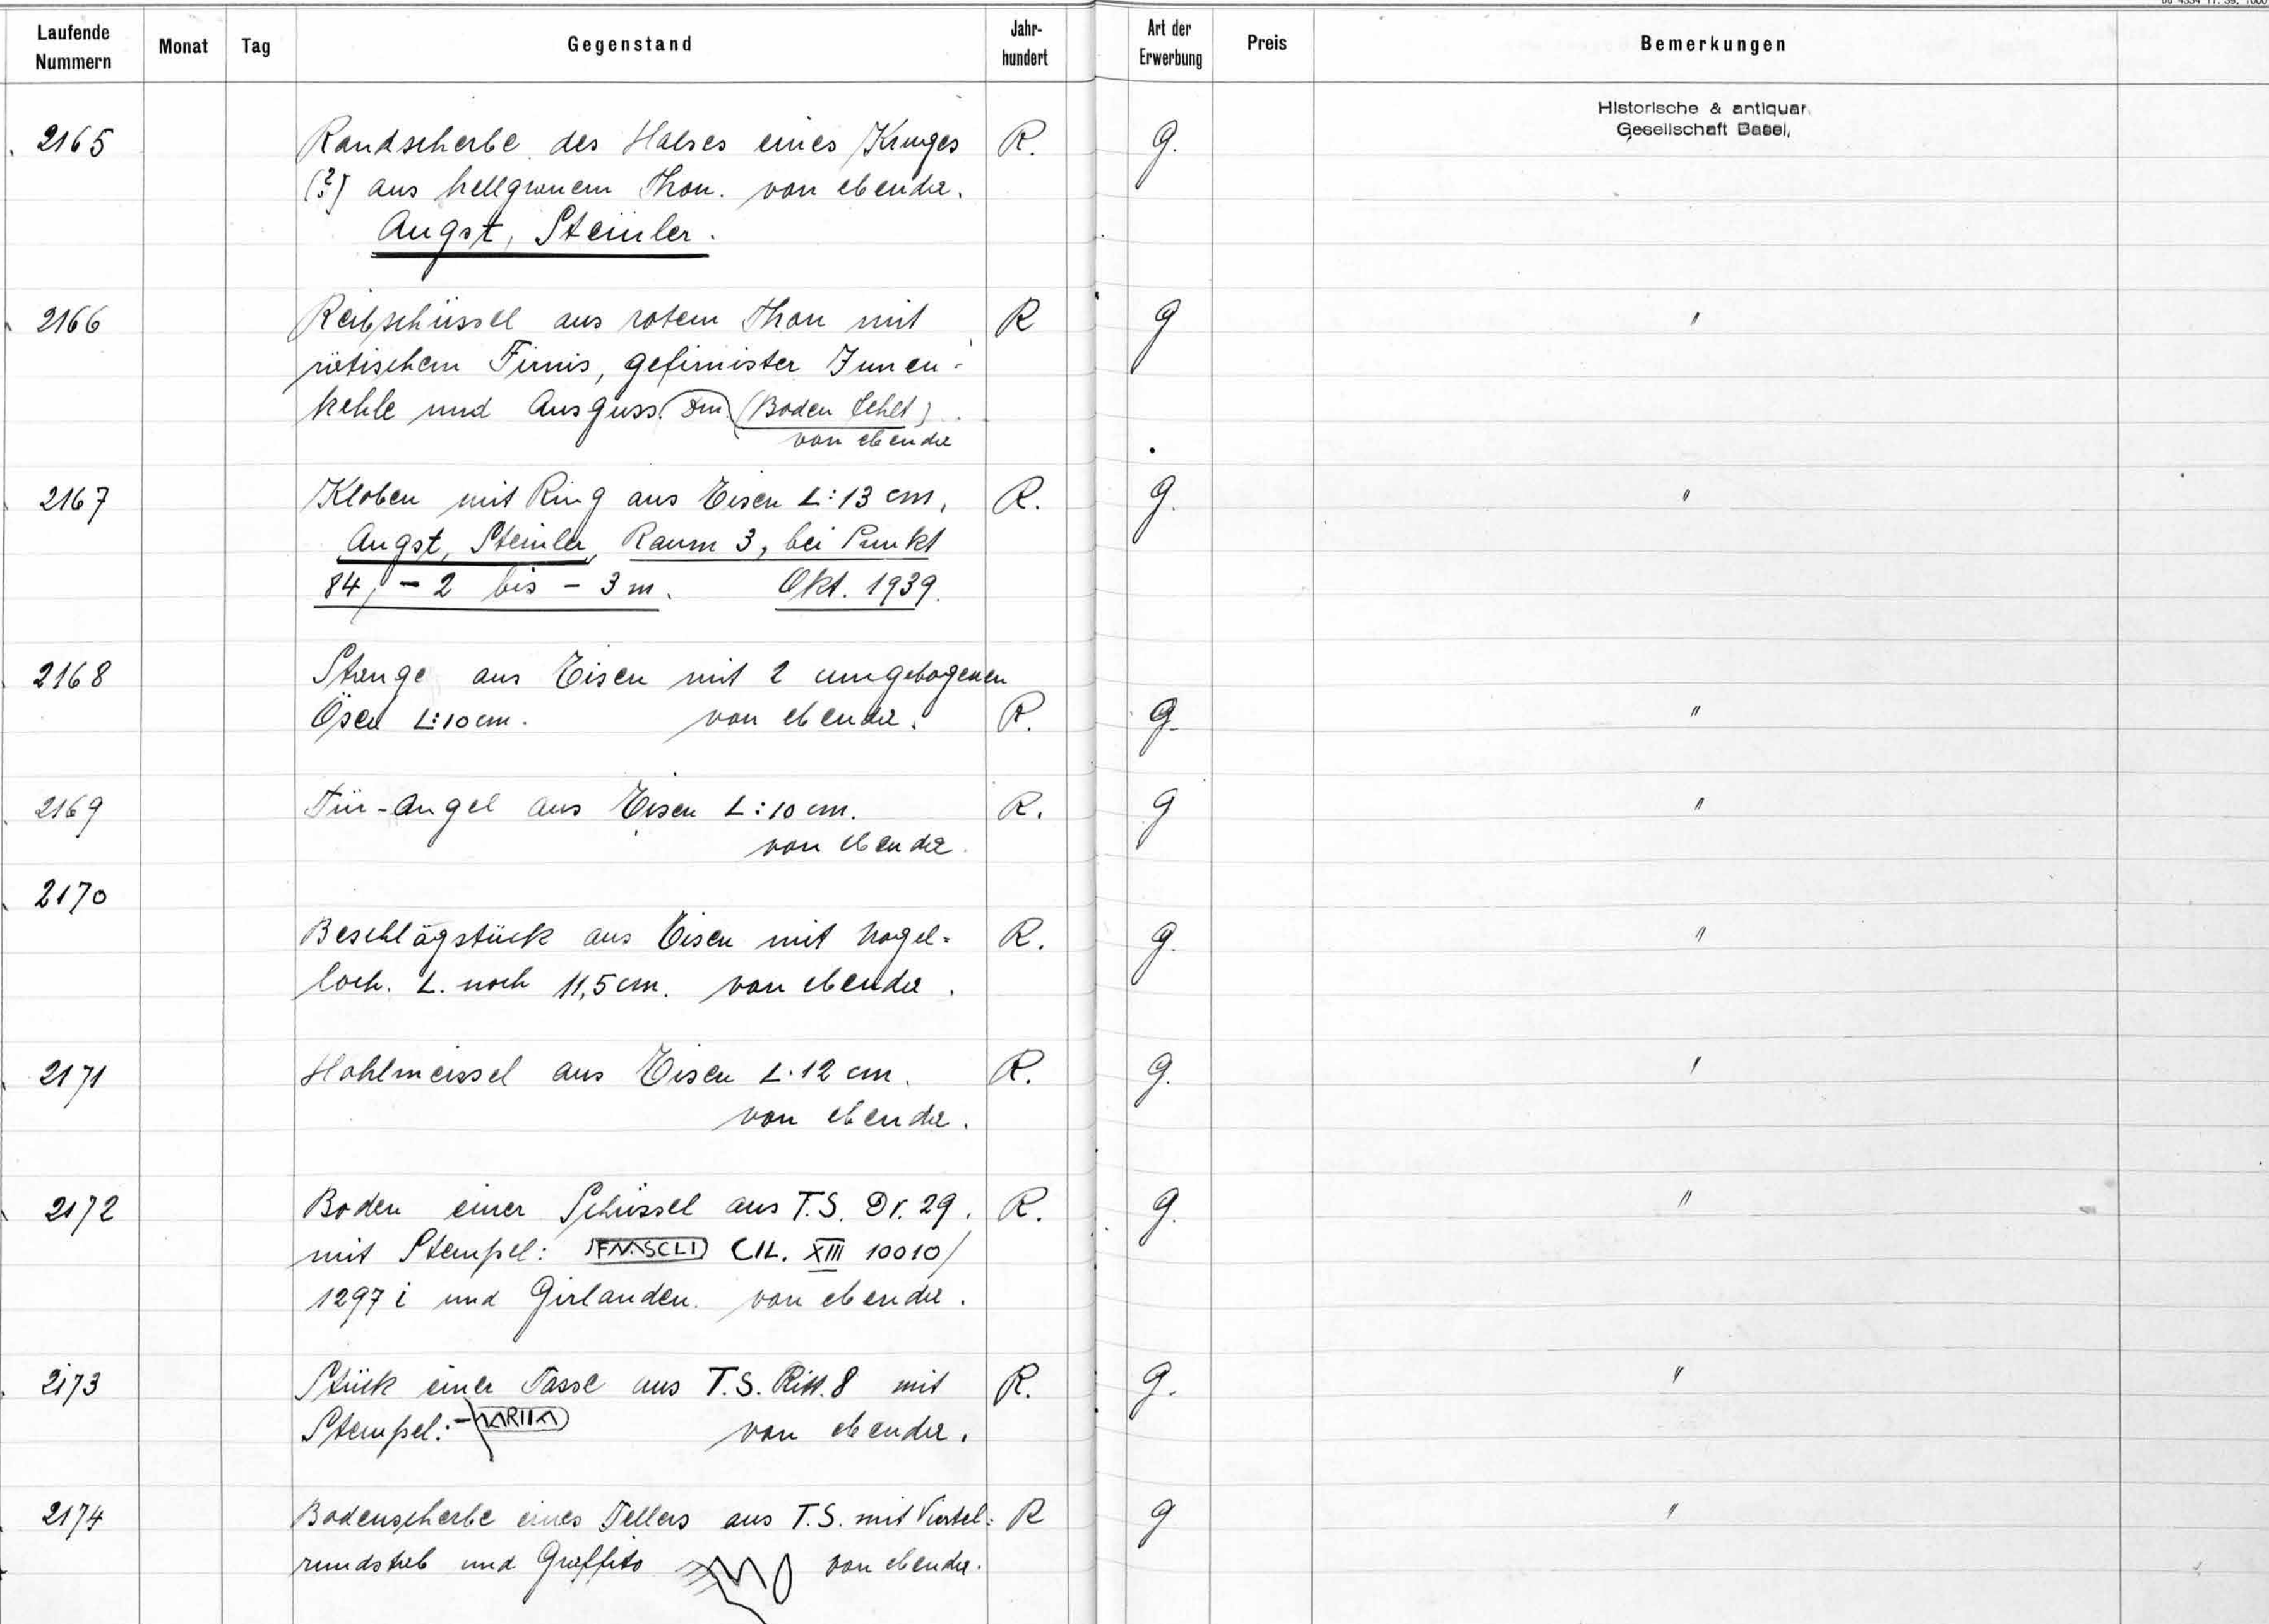 Laufende Nummern Monat Tag Gegenstand Jahr-hundert Art der Erwerbung Preis Bemerkungen
Historische & antiquar.
Gesellschaft Basel,
2165 Randscherbe des Halses eines Kruges R. G.
(?) aus hellgrauem Thon. von ebenda.
Augst, Steinler.
2166 Reibschüssel aus rotem Thon mit R G "
rätischem Firnis, gefirnister Innen-
kehle und Ausguss. Dm. (Boden fehlt)
von ebenda
2167 Kloben mit Ring aus Eisen L: 13 cm, R. G. "
Augst, Steinler, Raum 3, bei Punkt
84, - 2 bis - 3 m. Okt. 1939.
2168 Stange aus Eisen mit 2 umgebogenen
Ösen L: 10 cm. von ebenda. R. G. "
2169 Tür-Angel aus Eisen L: 10 cm. R. G "
von ebenda.
2170
Beschlägstück aus Eisen mit Nagel= R. G. "
loch. L. noch 11,5 cm. von ebenda.
2171 Hohlmeissel aus Eisen L. 12 cm. R. G. "
von ebenda.
2172 Boden einer Schüssel aus T.S. Dr. 29. R. G. "
mit Stempel: CIL. XIII 10010/
1297 i und Girlanden. von ebenda.
2173 Stück einer Tasse aus T.S. Ritt. 8 mit R. G. "
Stempel: von ebenda.
2174 Bodenscherbe eines Tellers aus T.S. mit Viertel= R G "
rundstab und Graffito von ebenda.